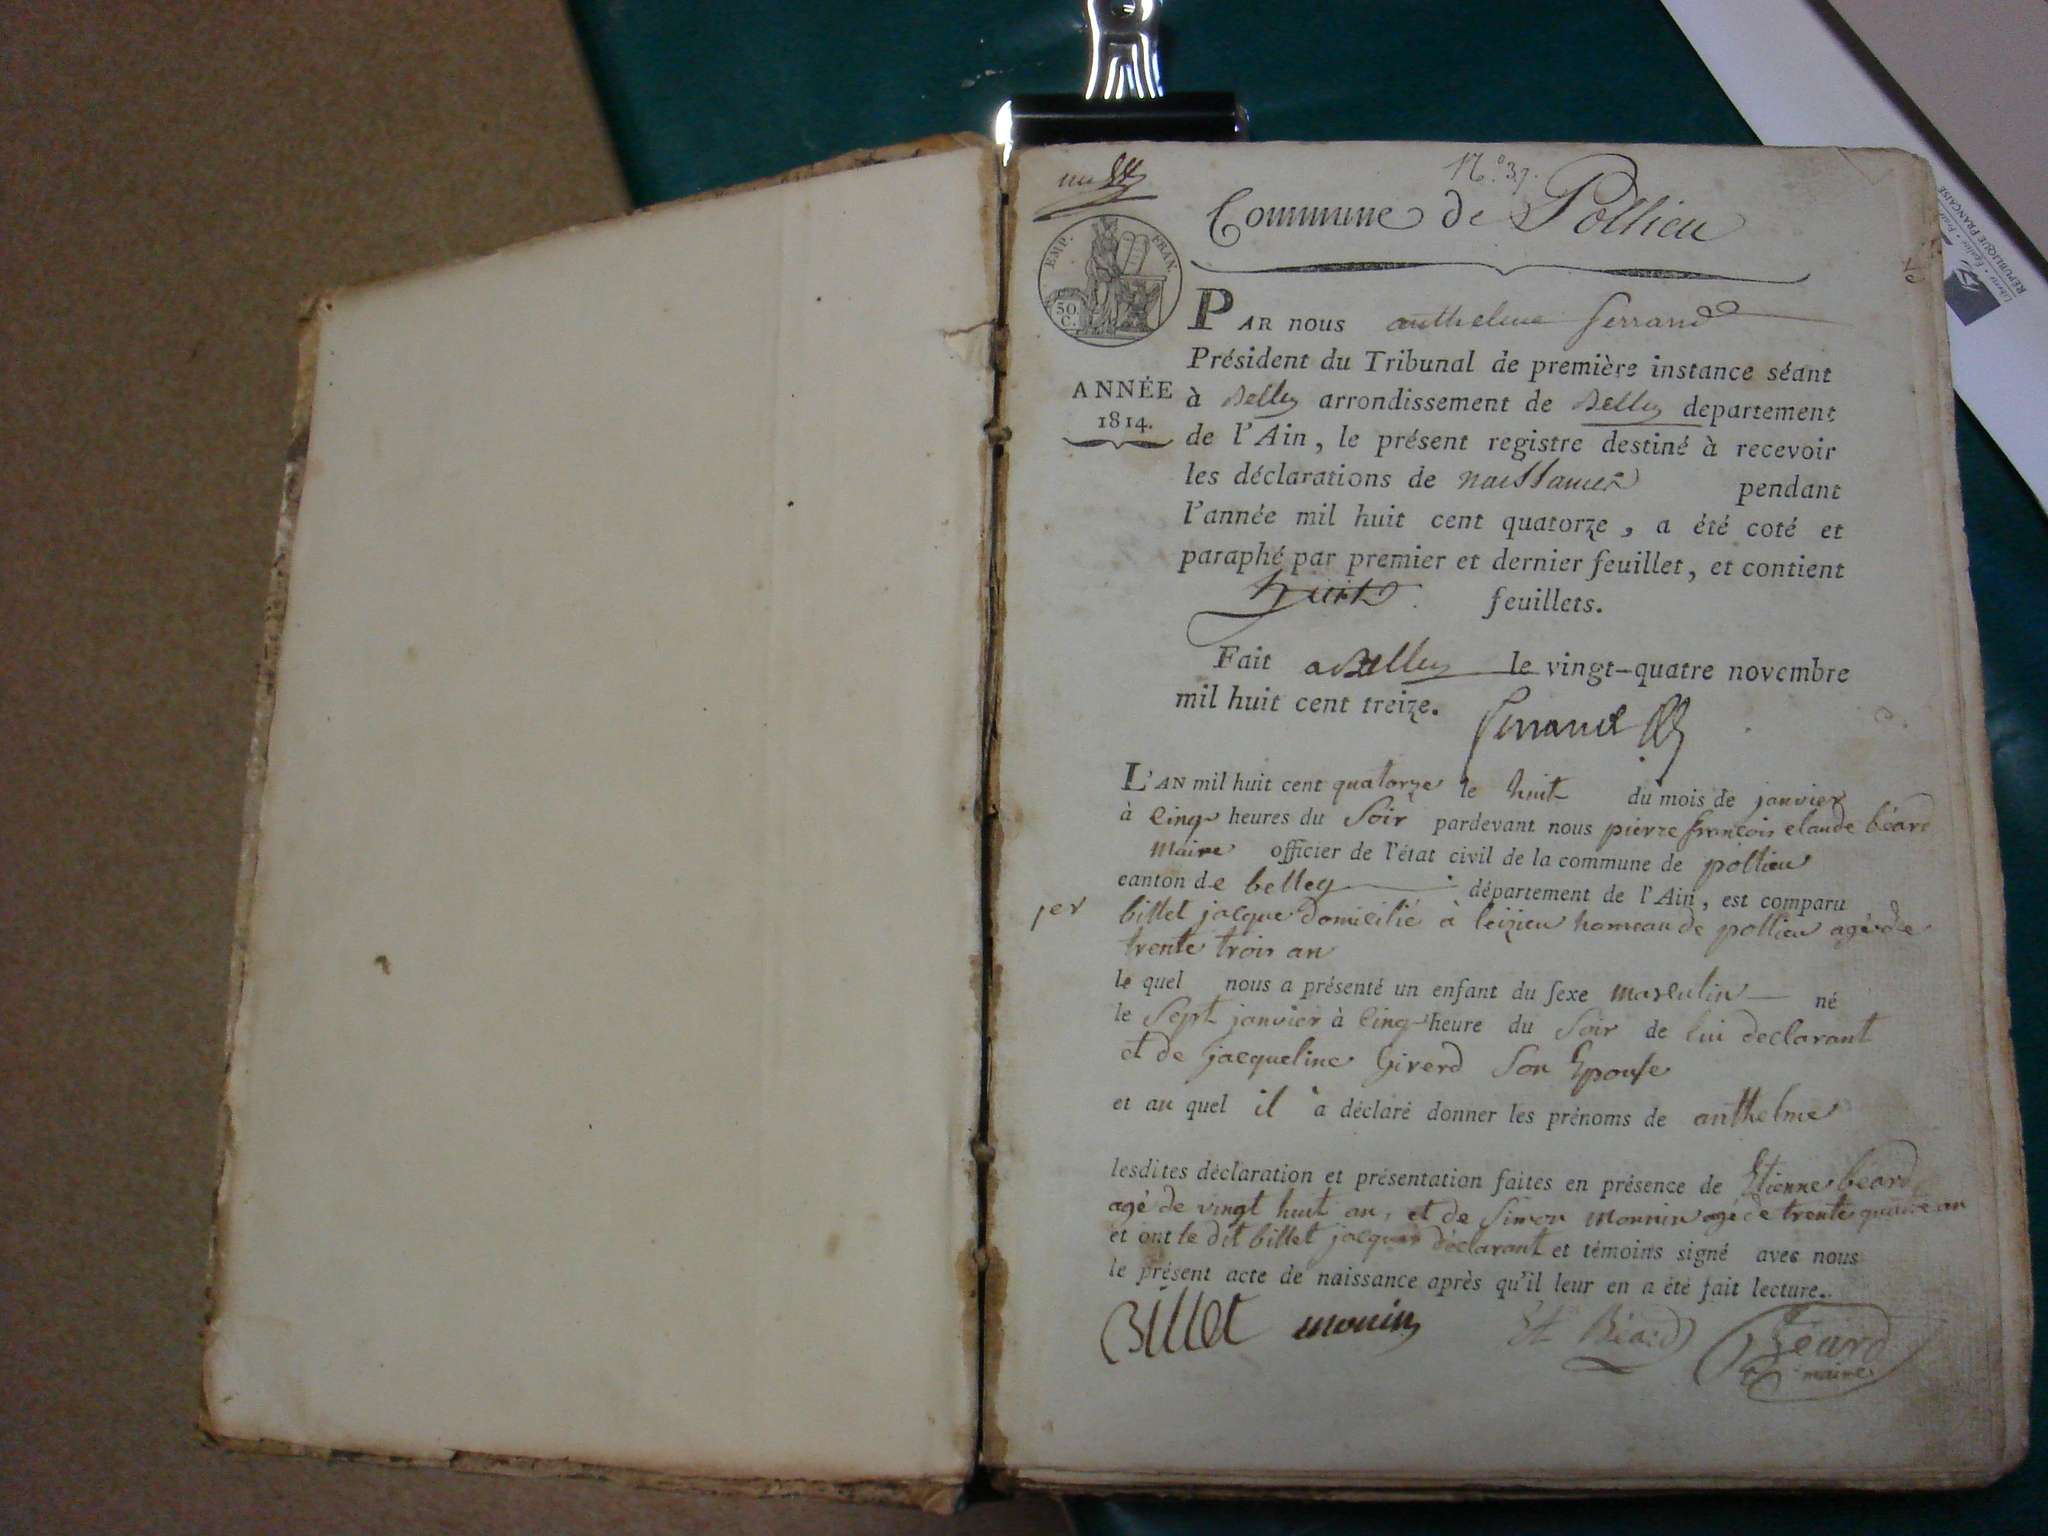 N.º 37.
Commune de Pollieu
EMP. FRAN.
50 C.
ANNÉE
1814.
PAR nous anthelme ferrand
Président du Tribunal de première instance séant
à Belley arrondissement de Belley departement
de l'Ain, le présent registre destiné à recevoir
les déclarations de naissances pendant
l'année mil huit cent quatorze, a été coté et
paraphé par premier et dernier feuillet, et contient
huit feuillets.
Fait a Belley le vingt-quatre novembre
mil huit cent treize.
ferrand
L'AN mil huit cent quatorze le huit du mois de janvier
à cinq heures du soir pardevant nous pierre françois claude béard
maire officier de l'état civil de la commune de pollieu
canton de belley département de l'Ain, est comparu
1er billet jacque domicilié à leizieu hameau de pollieu agé de
trente trois an
le quel nous a présenté un enfant du sexe masculin né
le sept janvier à cinq heure du soir de lui declarant
et de jacqueline Girerd son Epouse
et au quel il à déclaré donner les prénoms de anthelme
lesdites déclaration et présentation faites en présence de Etienne béard
agé de vingt huit an, et de Simon monnin agé de trente quatre an
et ont le dit billet jacques déclarant et témoins signé avec nous
le présent acte de naissance après qu'il leur en a été fait lecture.
Billet monin Et Béard Béard
maire
Liberté • Égalité •
RÉPUBLIQUE FRANÇAISE